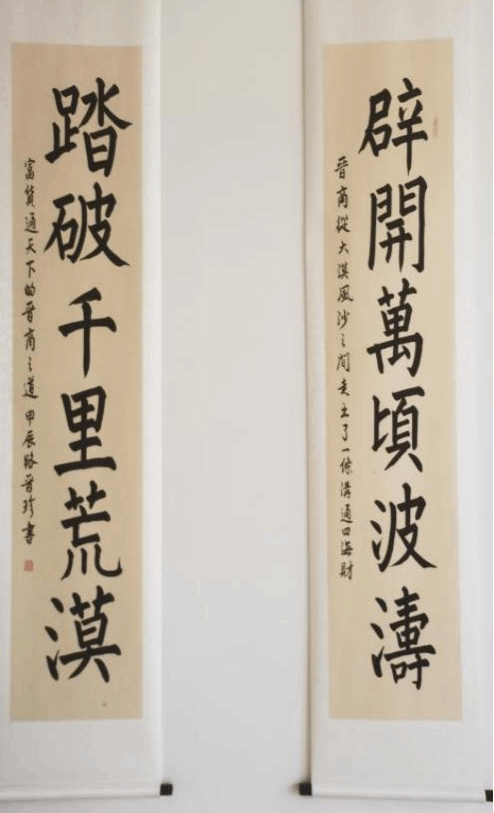 辟開萬頃波濤
晉商從大漠風沙之間走出了一條溝通四海財
踏破千里荒漠
富貨通天下的晉商之道 甲辰路晉珍書